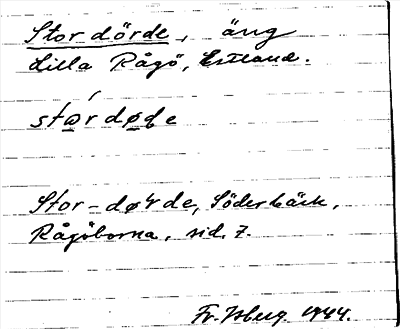 Stor dörde, äng
Lilla Rågö, Estland.
Stor-dørde, Söderbäck,
Rågöborna, sid. 7.
Fr. Isberg 1944.